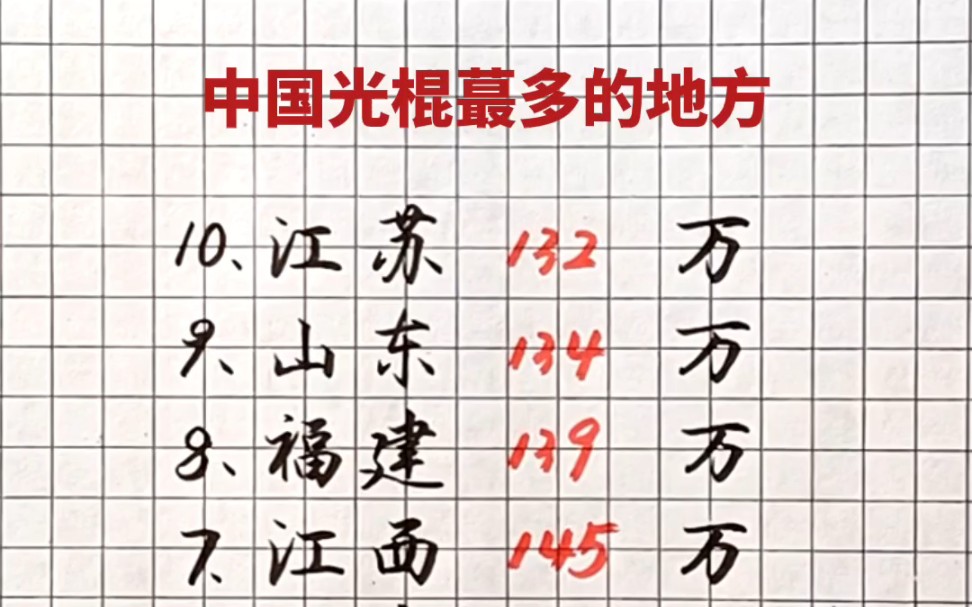 中国光棍蕞多的地方
10、江苏 132 万
9、山东 134 万
8、福建 139 万
7、江西 145 万